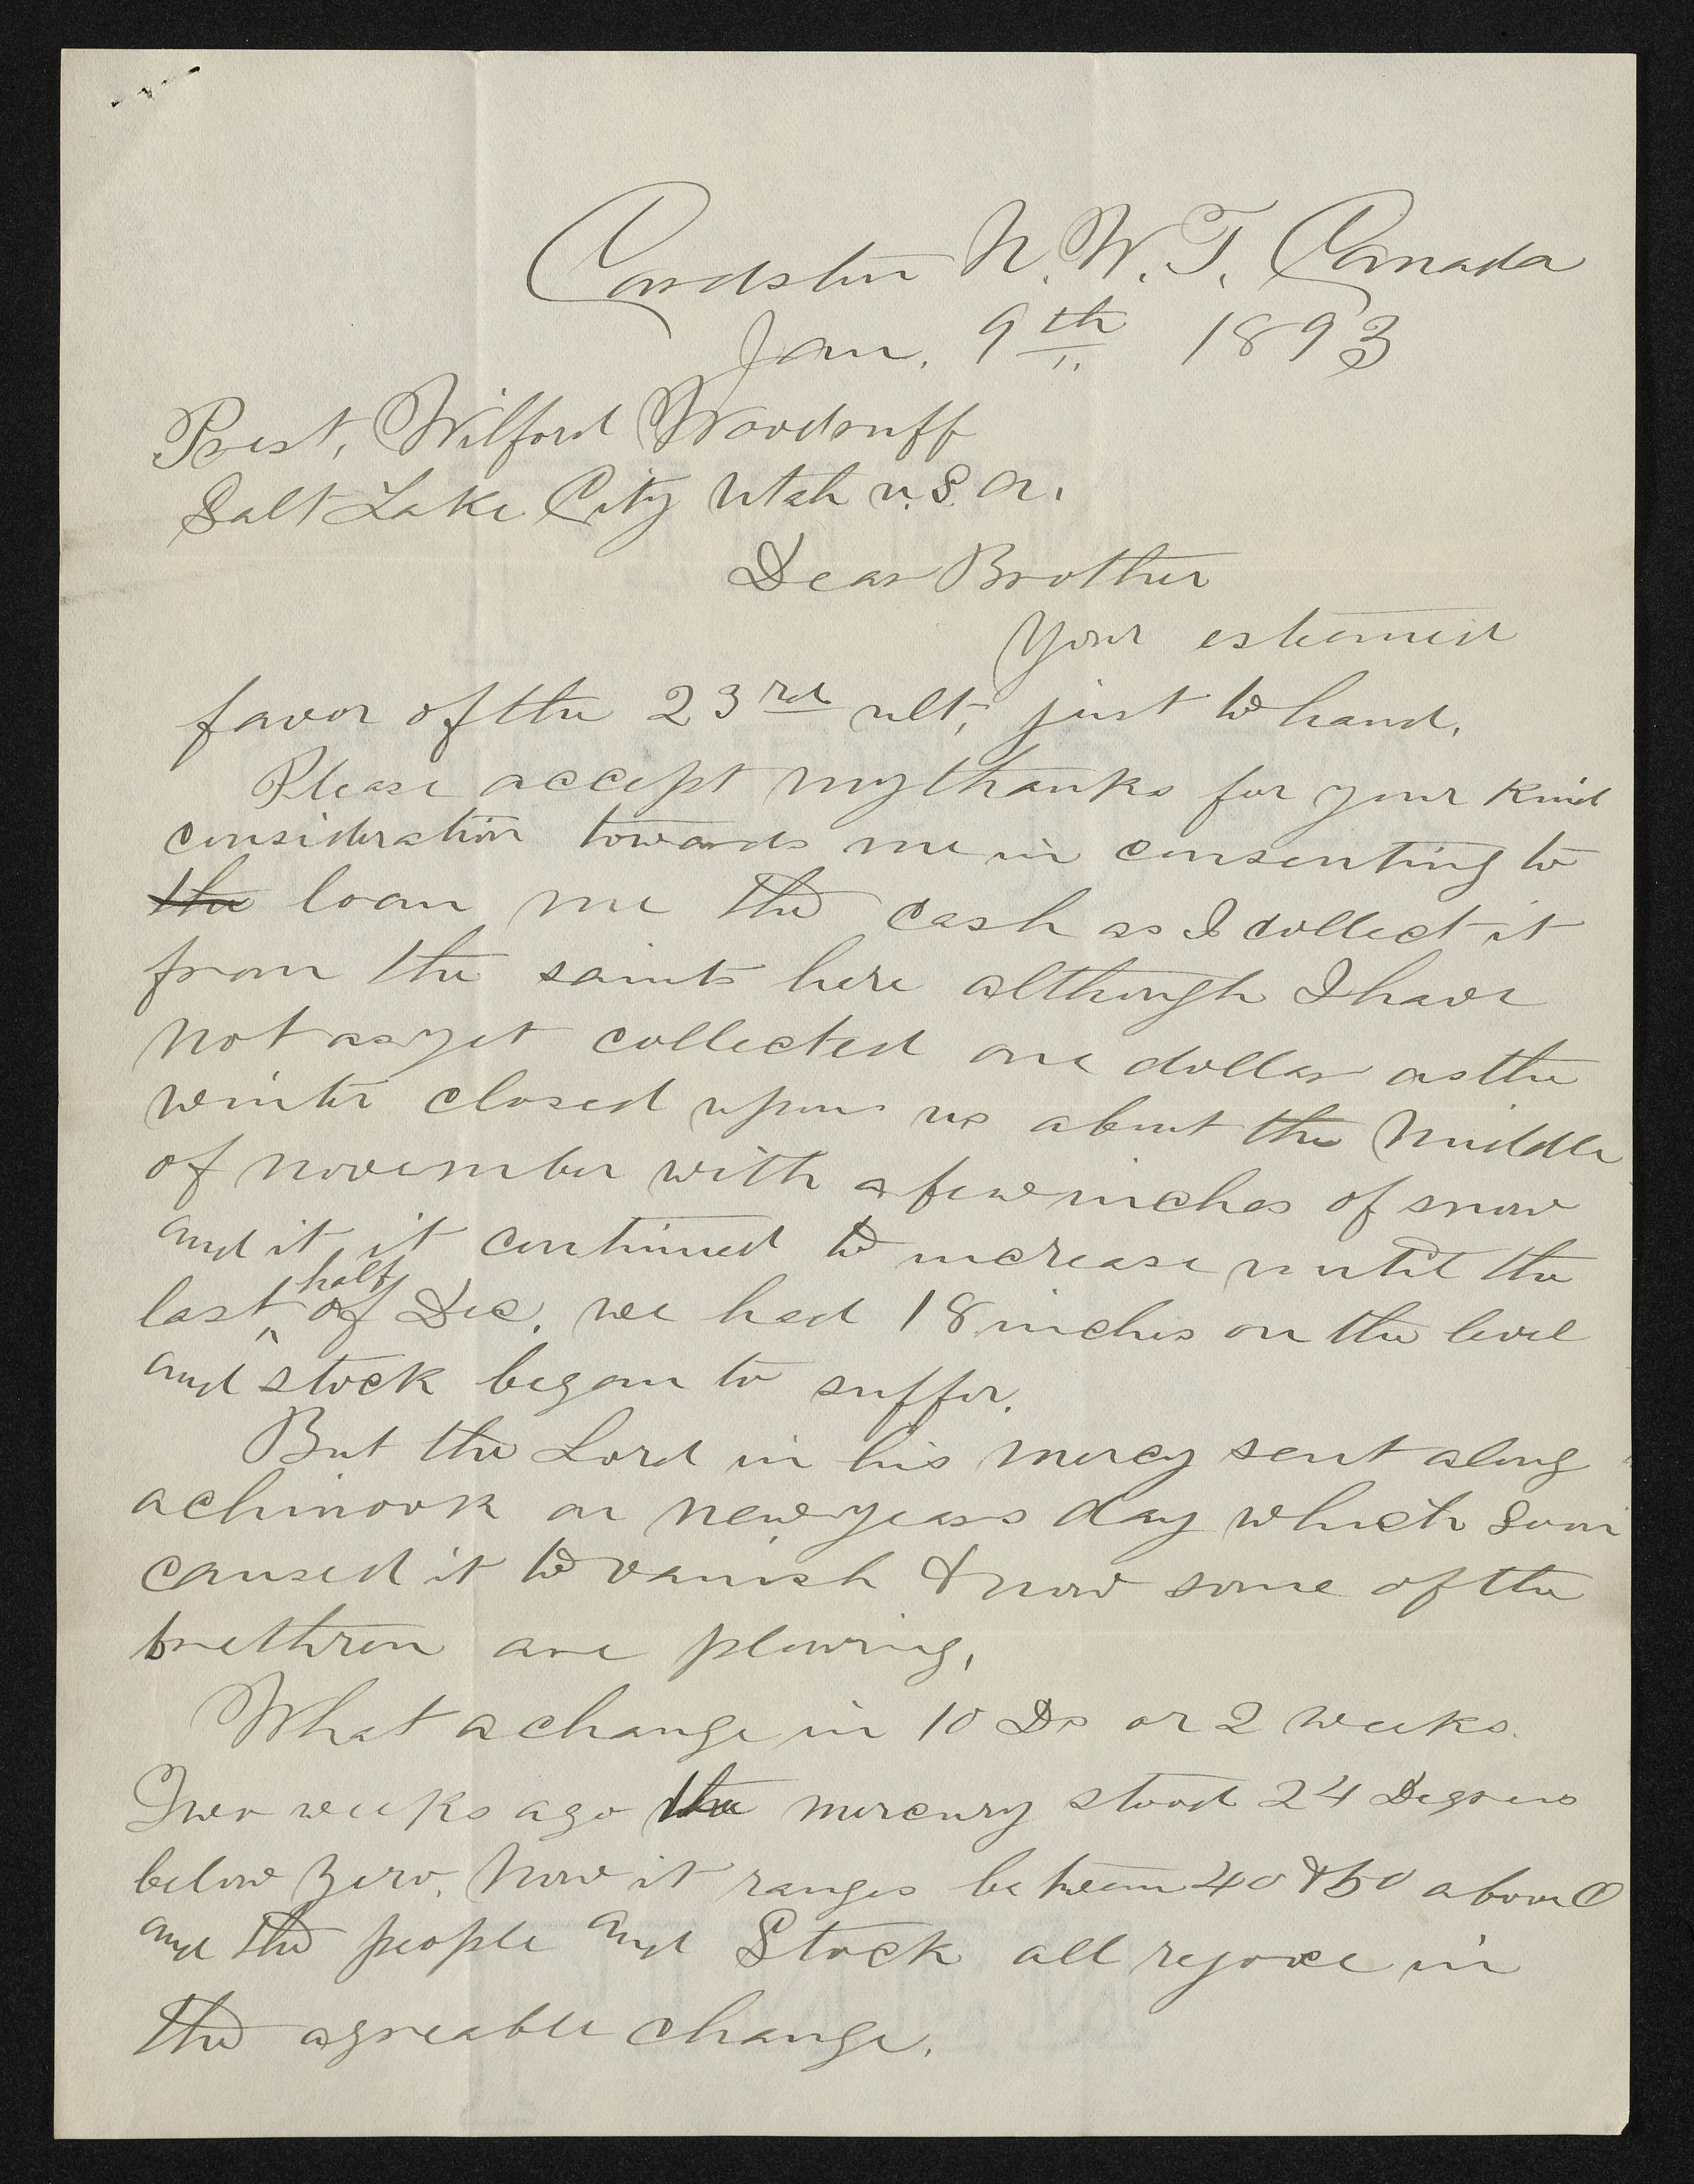 Cardston N.W.T. Canada
Jan. 9th 1893
Prest, Wilford Woodruff
Salt Lake City Utah U.S.A.
Dear Brother
Your esteemed
favor of the 23rd ult; just to hand.
Please accept my thanks for your kind
consideration towards me in consenting to
the loan me the cash as I collect it
from the saints here although I have
not as yet collected one dollar as the
winter closed upon us about the middle
of november with a few inches of snow
and it, it continued to increase until the
last half of Dec. we had 18 inches on the level
and stock began to suffer.
But the Lord in his mercy sent along
a chinook on new years day which soon
caused it to vanish & now some of the
brethren are plowing,
What a change in 10 Ds or 2 weeks.
Two weeks ago the mercury stood 24 Degrees
below Zero. Now it ranges between 40 & 50 above 0
and the people and Stock all rejoice in
the agreable change.